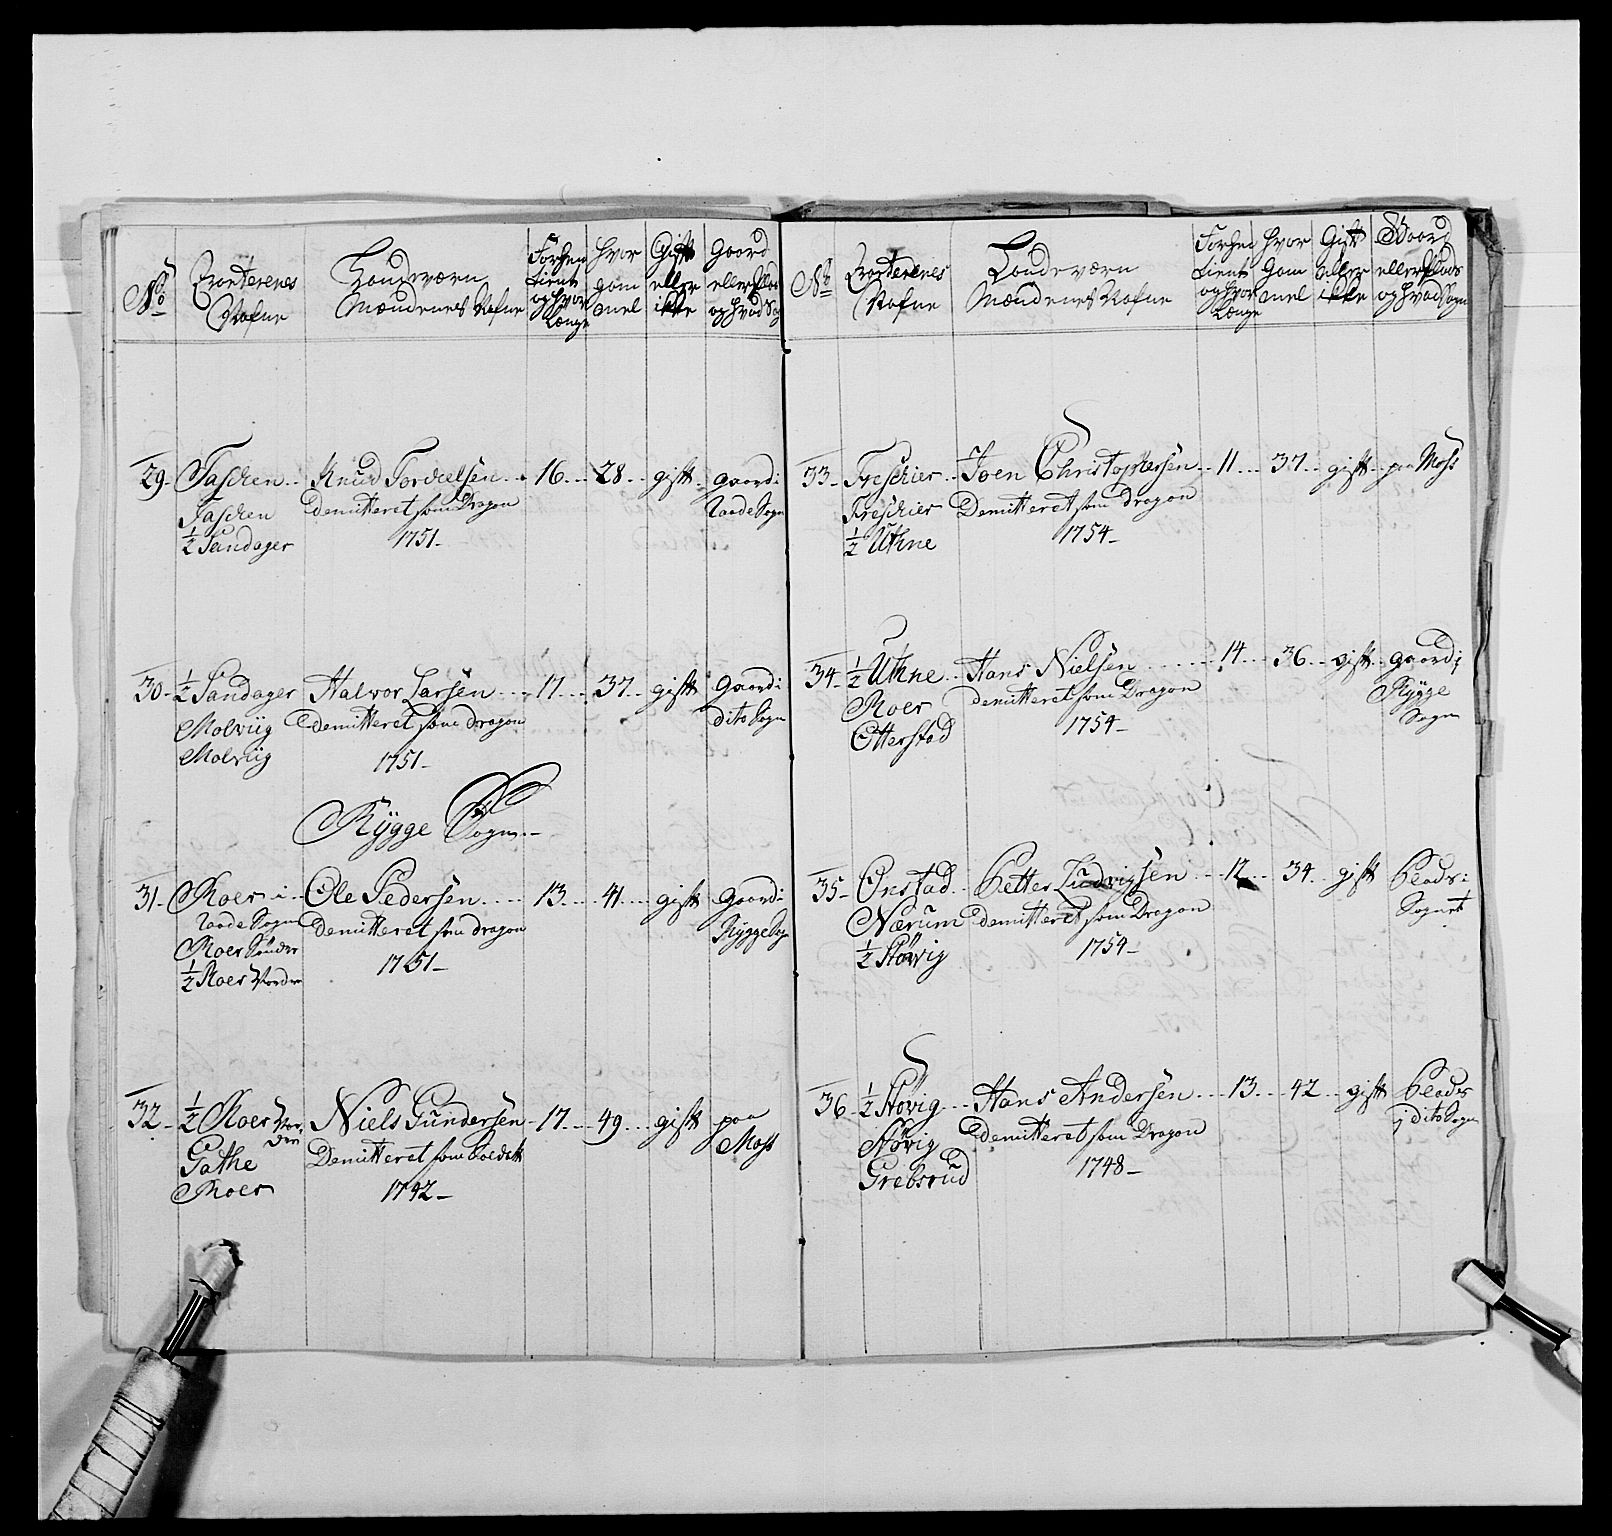 No
Qvarterenes Nafne
Landeværn Mændenes Nafne
Forhen tient og hvor Længe
hvor gam mel
Gift eller ikke
gaard eller Plads og hvad Sogn
29 Taschen Knud Torckelsen 16 28 gift gaard i
Taschen Demitteret som Dragon Raade Sogn
1/2 Sandager 1751
30 1/2 Sandager Halvor Larsen 17 37 gift gaard i
Molviig demitteret som dragon dito Sogn
Molviig 1751
Rygge Sogn
31 Roer i Ole Pedersen 13 41 gift gaard i
Raade Sogn Demitteret som dragon Rygge Sogn
Roer Sønder 1751
1/2 Roer Nordre
32 1/2 Roer Nor- Niels Gundersen 17 49 gift paa
dre Demitteret som Soldatt Moss
Gathe
Roer 1742
No
Qvarterenes Nafne
Landeværn Mændenes Nafne
Forhen tient og hvor Længe
hvor Gam mel
Gift eller ikke
Gaard eller Plads og hvad Sogn
33 Freschier Joen Christophersen 11 37 gift paa Moss
Freschier Demitteret som dragon
1/2 Uthne 1754
34 1/2 Uthne Hans Nielsen 14 36 gift gaard i
Roer demitteret som Dragon Rygge
Otterstad 1754 Sogn
35 Onstad Petter Ludvigsen 12 34 gift Plads i
Nærum demitteret som Dragon Sognet
1/2 Støvig 1754
36 1/2 Støvig Hans Andersen 13 42 gift Plads
Støvig demitteret som Dragon i dito Sogn
Grebsrud 1748